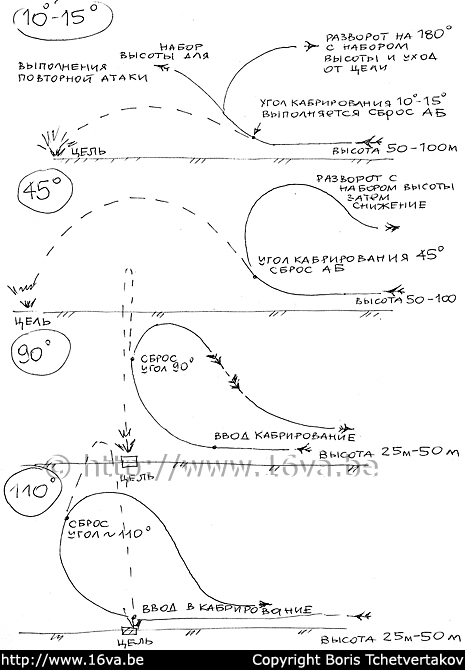 10°-15°
НАБОР
ВЫСОТЫ ДЛЯ
ВЫПОЛНЕНИЯ
ПОВТОРНОЙ АТАКИ
РАЗВОРОТ НА 180°
С НАБОРОМ
ВЫСОТЫ И УХОД
ОТ ЦЕЛИ
УГОЛ КАБРИРОВАНИЯ 10°-15°
ВЫПОЛНЯЕТСЯ СБРОС АБ
ЦЕЛЬ
ВЫСОТА 50-100м
45°
РАЗВОРОТ С
НАБОРОМ ВЫСОТЫ
ЗАТЕМ
СНИЖЕНИЕ
УГОЛ КАБРИРОВАНИЯ 45°
СБРОС АБ
ВЫСОТА 50-100
ЦЕЛЬ
90°
СБРОС
УГОЛ 90°
ВВОД КАБРИРОВАНИЕ
ВЫСОТА 25м-50м
© http://www.16va.be
ЦЕЛЬ
110°
СБРОС
УГОЛ ~110°
ВВОД В КАБРИРОВАНИЕ
ЦЕЛЬ
ВЫСОТА 25м-50м
http://www.16va.be
Copyright Boris Tchetvertakov